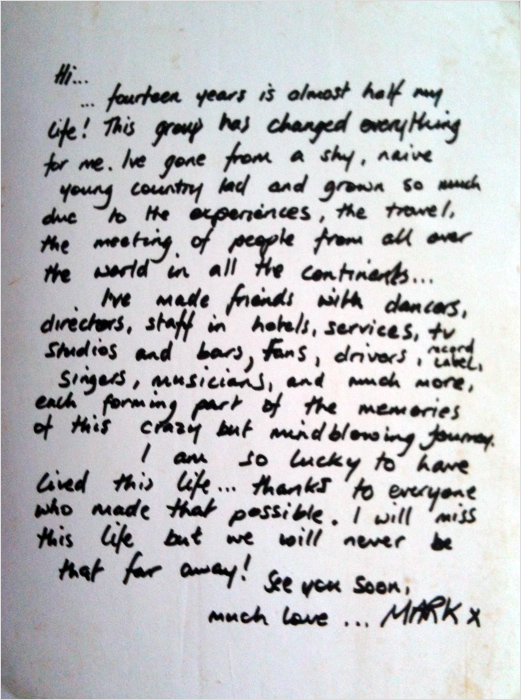 Hi...
... fourteen years is almost half my
life! This group has changed everything
for me. Ive gone from a shy, naive
young country lad and grown so much
due to the experiences, the travel,
the meeting of people from all over
the world in all the continents...
Ive made friends with dancers,
directors, staff in hotels, services, tv
studios and bars, fans, drivers, record label,
singers, musicians, and much more,
each forming part of the memories
of this crazy but mindblowing journey.
I am so lucky to have
lived this life... thanks to everyone
who made that possible. I will miss
this life but we will never be
that far away! See you soon,
much love ... MARK x